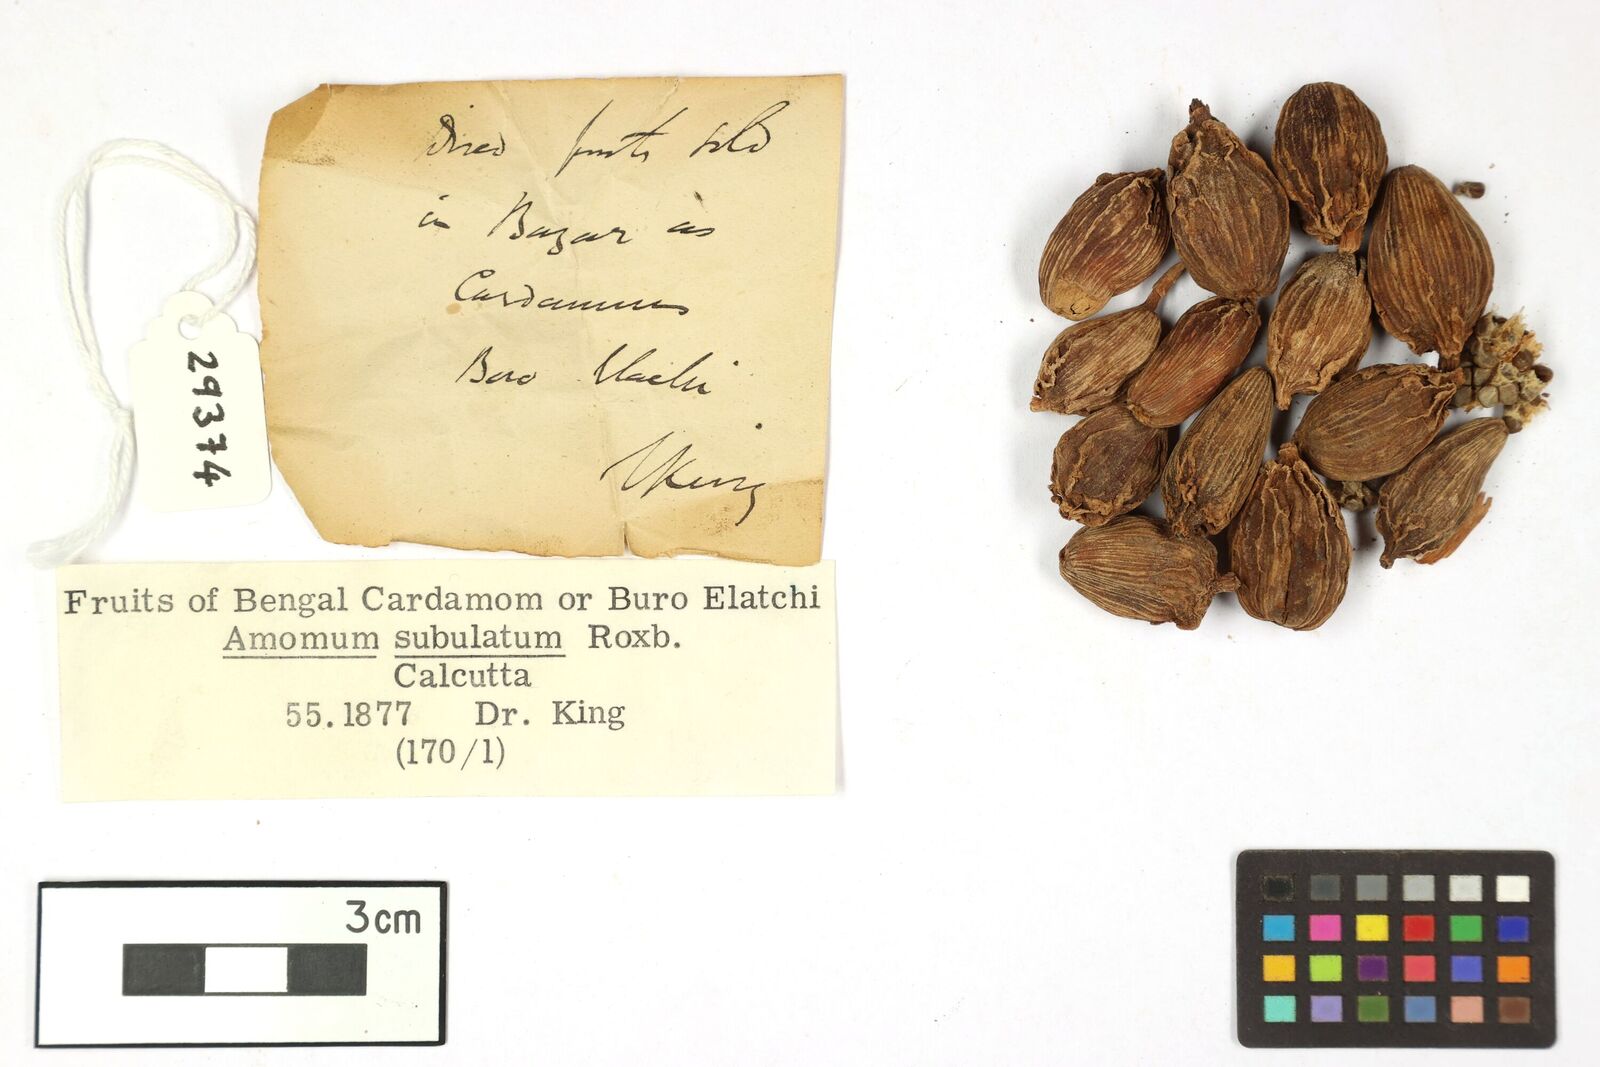 29374
Dried fruits sold
in Bazar as
Cardamums
Boro Elachi
GKing
Fruits of Bengal Cardamom or Buro Elatchi
Amomum subulatum Roxb.
Calcutta
55.1877 Dr. King
(170/1)
3cm